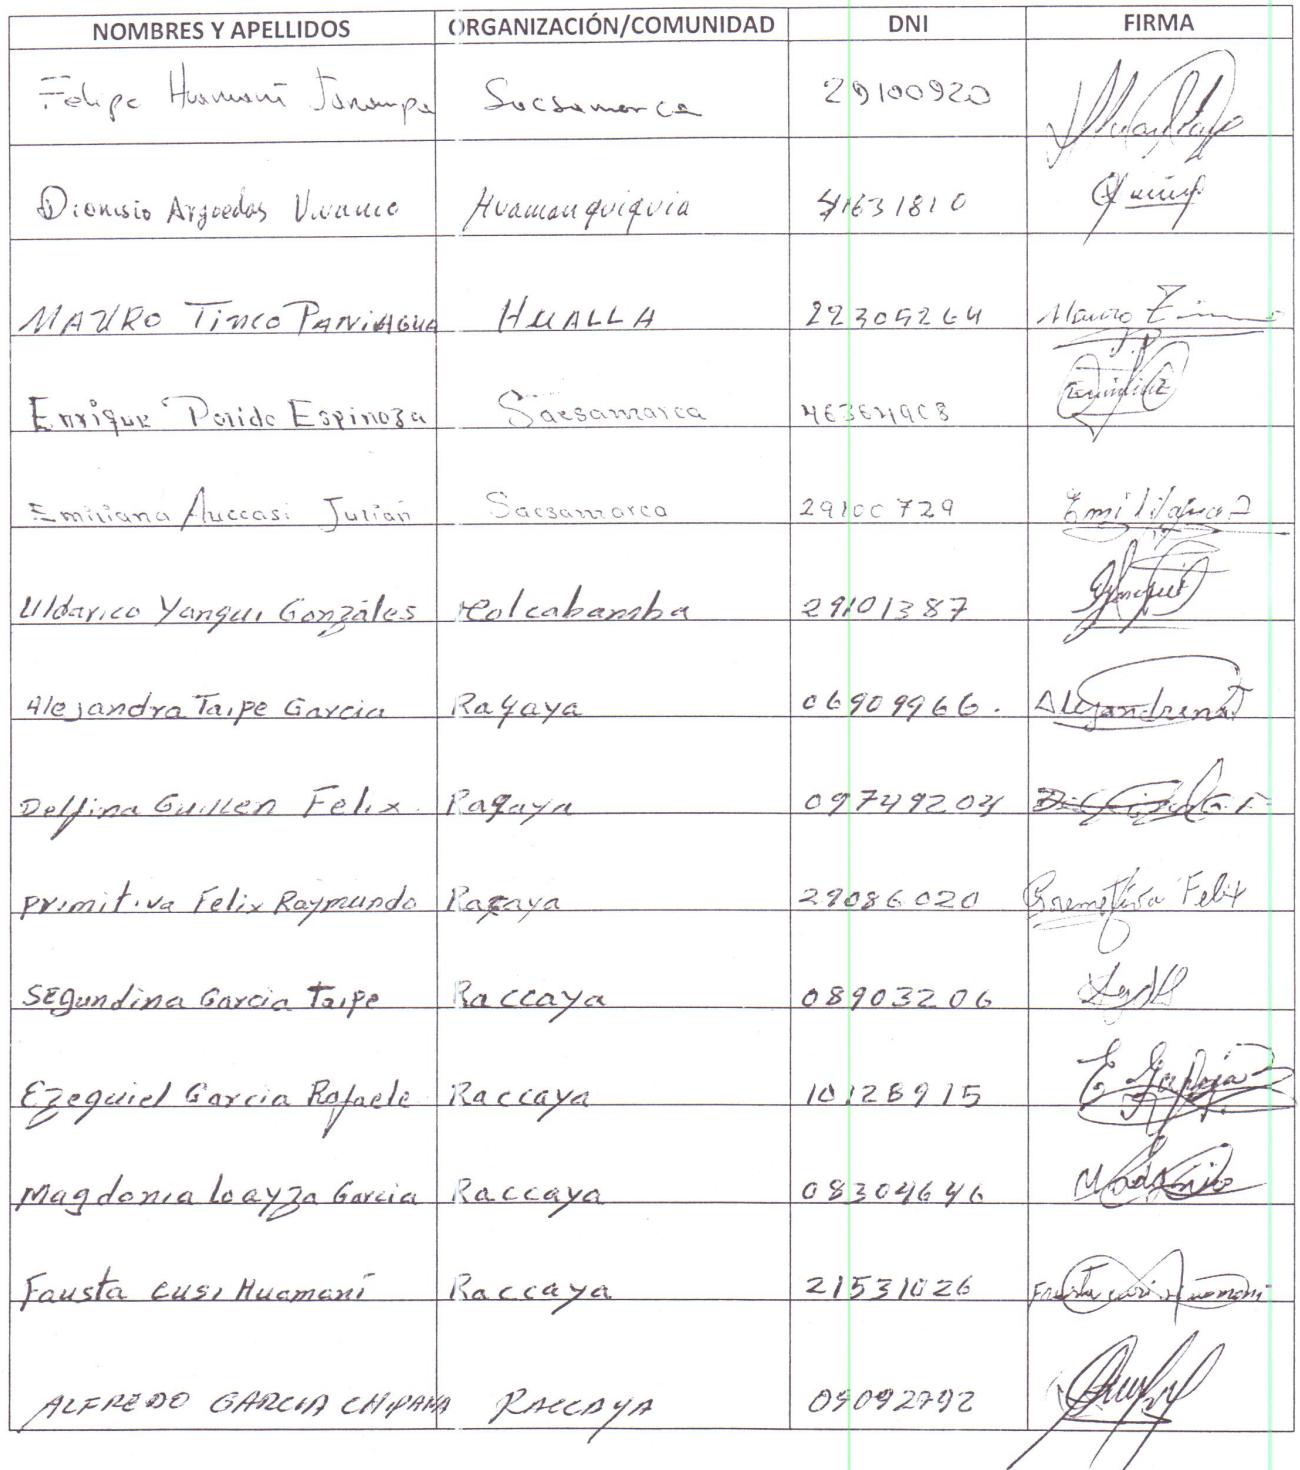 NOMBRES Y APELLIDOS ORGANIZACIÓN/COMUNIDAD DNI FIRMA
Felipe Huamaní Sacsamarca 29100920
Dionisio Argoedas Vivanco Huamanquiquia 41631810
MAURO TINCO PANIAGUA HUALLA Mauro
Enrique Espinoza Sacsamarca
Emiliana Auccasi Julian Sacsamarca 29100729
Uldarico Yanqui Gonzáles Colcabamba 29101387
Alejandra Taipe Garcia Raqaya 06909966.
Delfina Guillen Felix Raqaya 09749204
Primitiva Felix Raymundo Racaya 29086020 Felix
Segundina Garcia Taipe Raccaya 08903206
Ezequiel Garcia Rafaele Raccaya 10128915
Magdonia Loayza Garcia Raccaya 08304646
Fausta Cusi Huamaní Raccaya 21531026
ALFREDO GARCIA CHIPANA RACCAYA